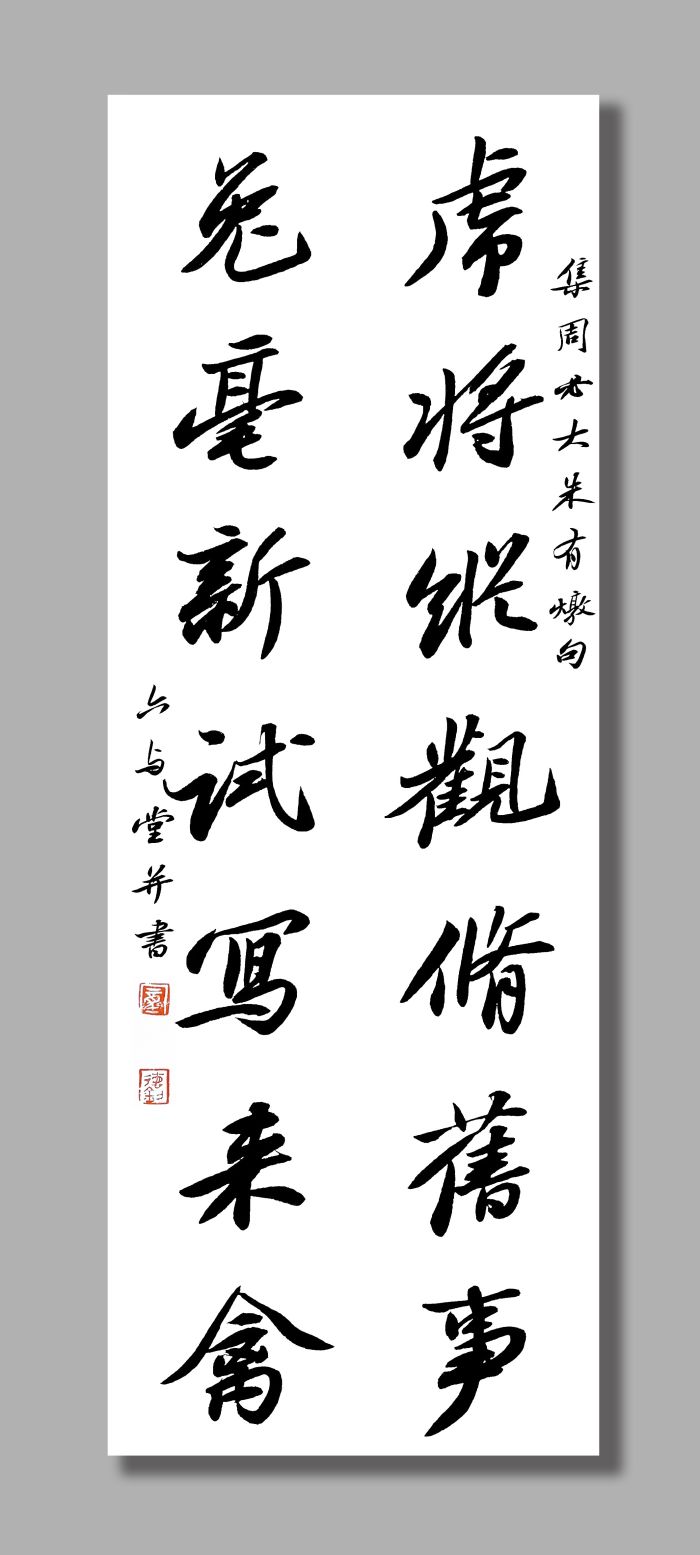 集周必大朱有燉句
虎将縱觀脩舊事
兔毫新試寫来禽
六与堂并書